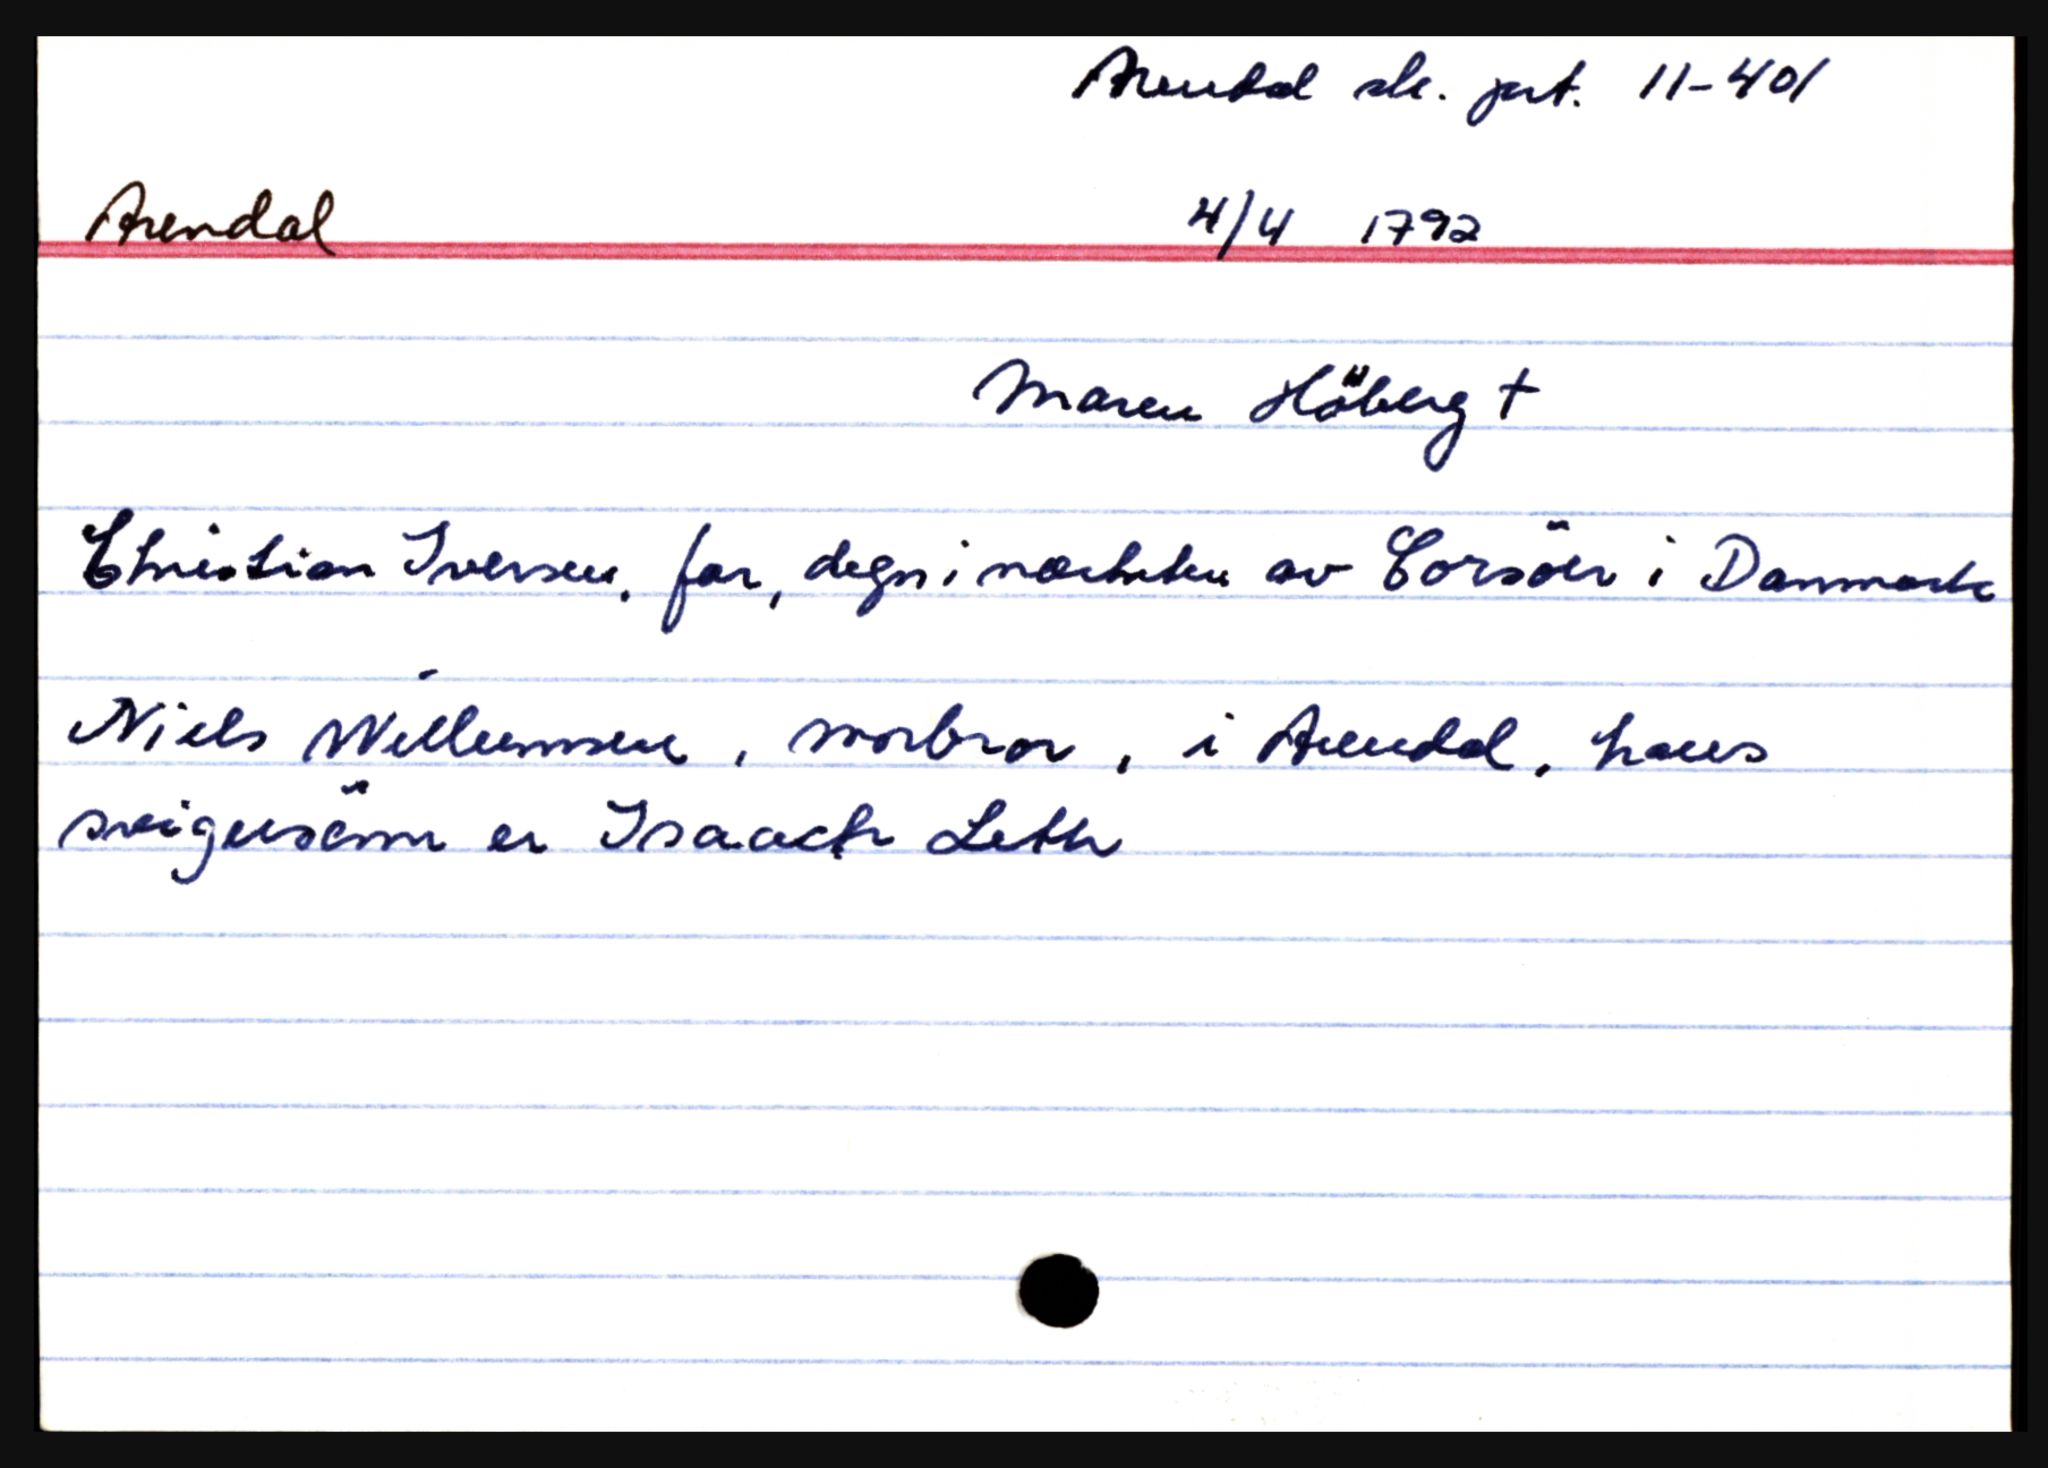 Arendal sk. prt. 11-401
Arendal 4/4 1792
Maren Höberg †
Christian Iversen, far, degn i nærheten av Corsöer i Danmark
Niels Willumsen, morbror, i Arendal, hans
svigersönn er Isaach Leth